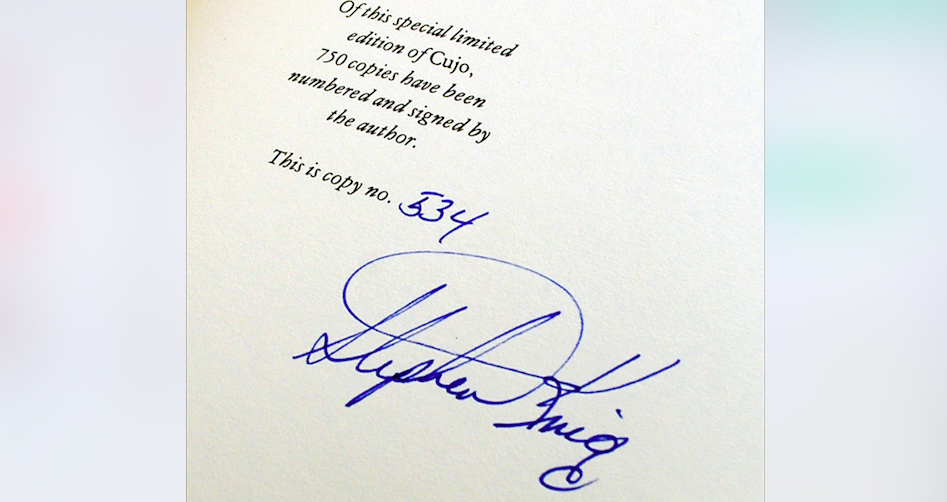 Of this special limited
edition of Cujo,
750 copies have been
numbered and signed by
the author.
This is copy no. 534
Stephen King